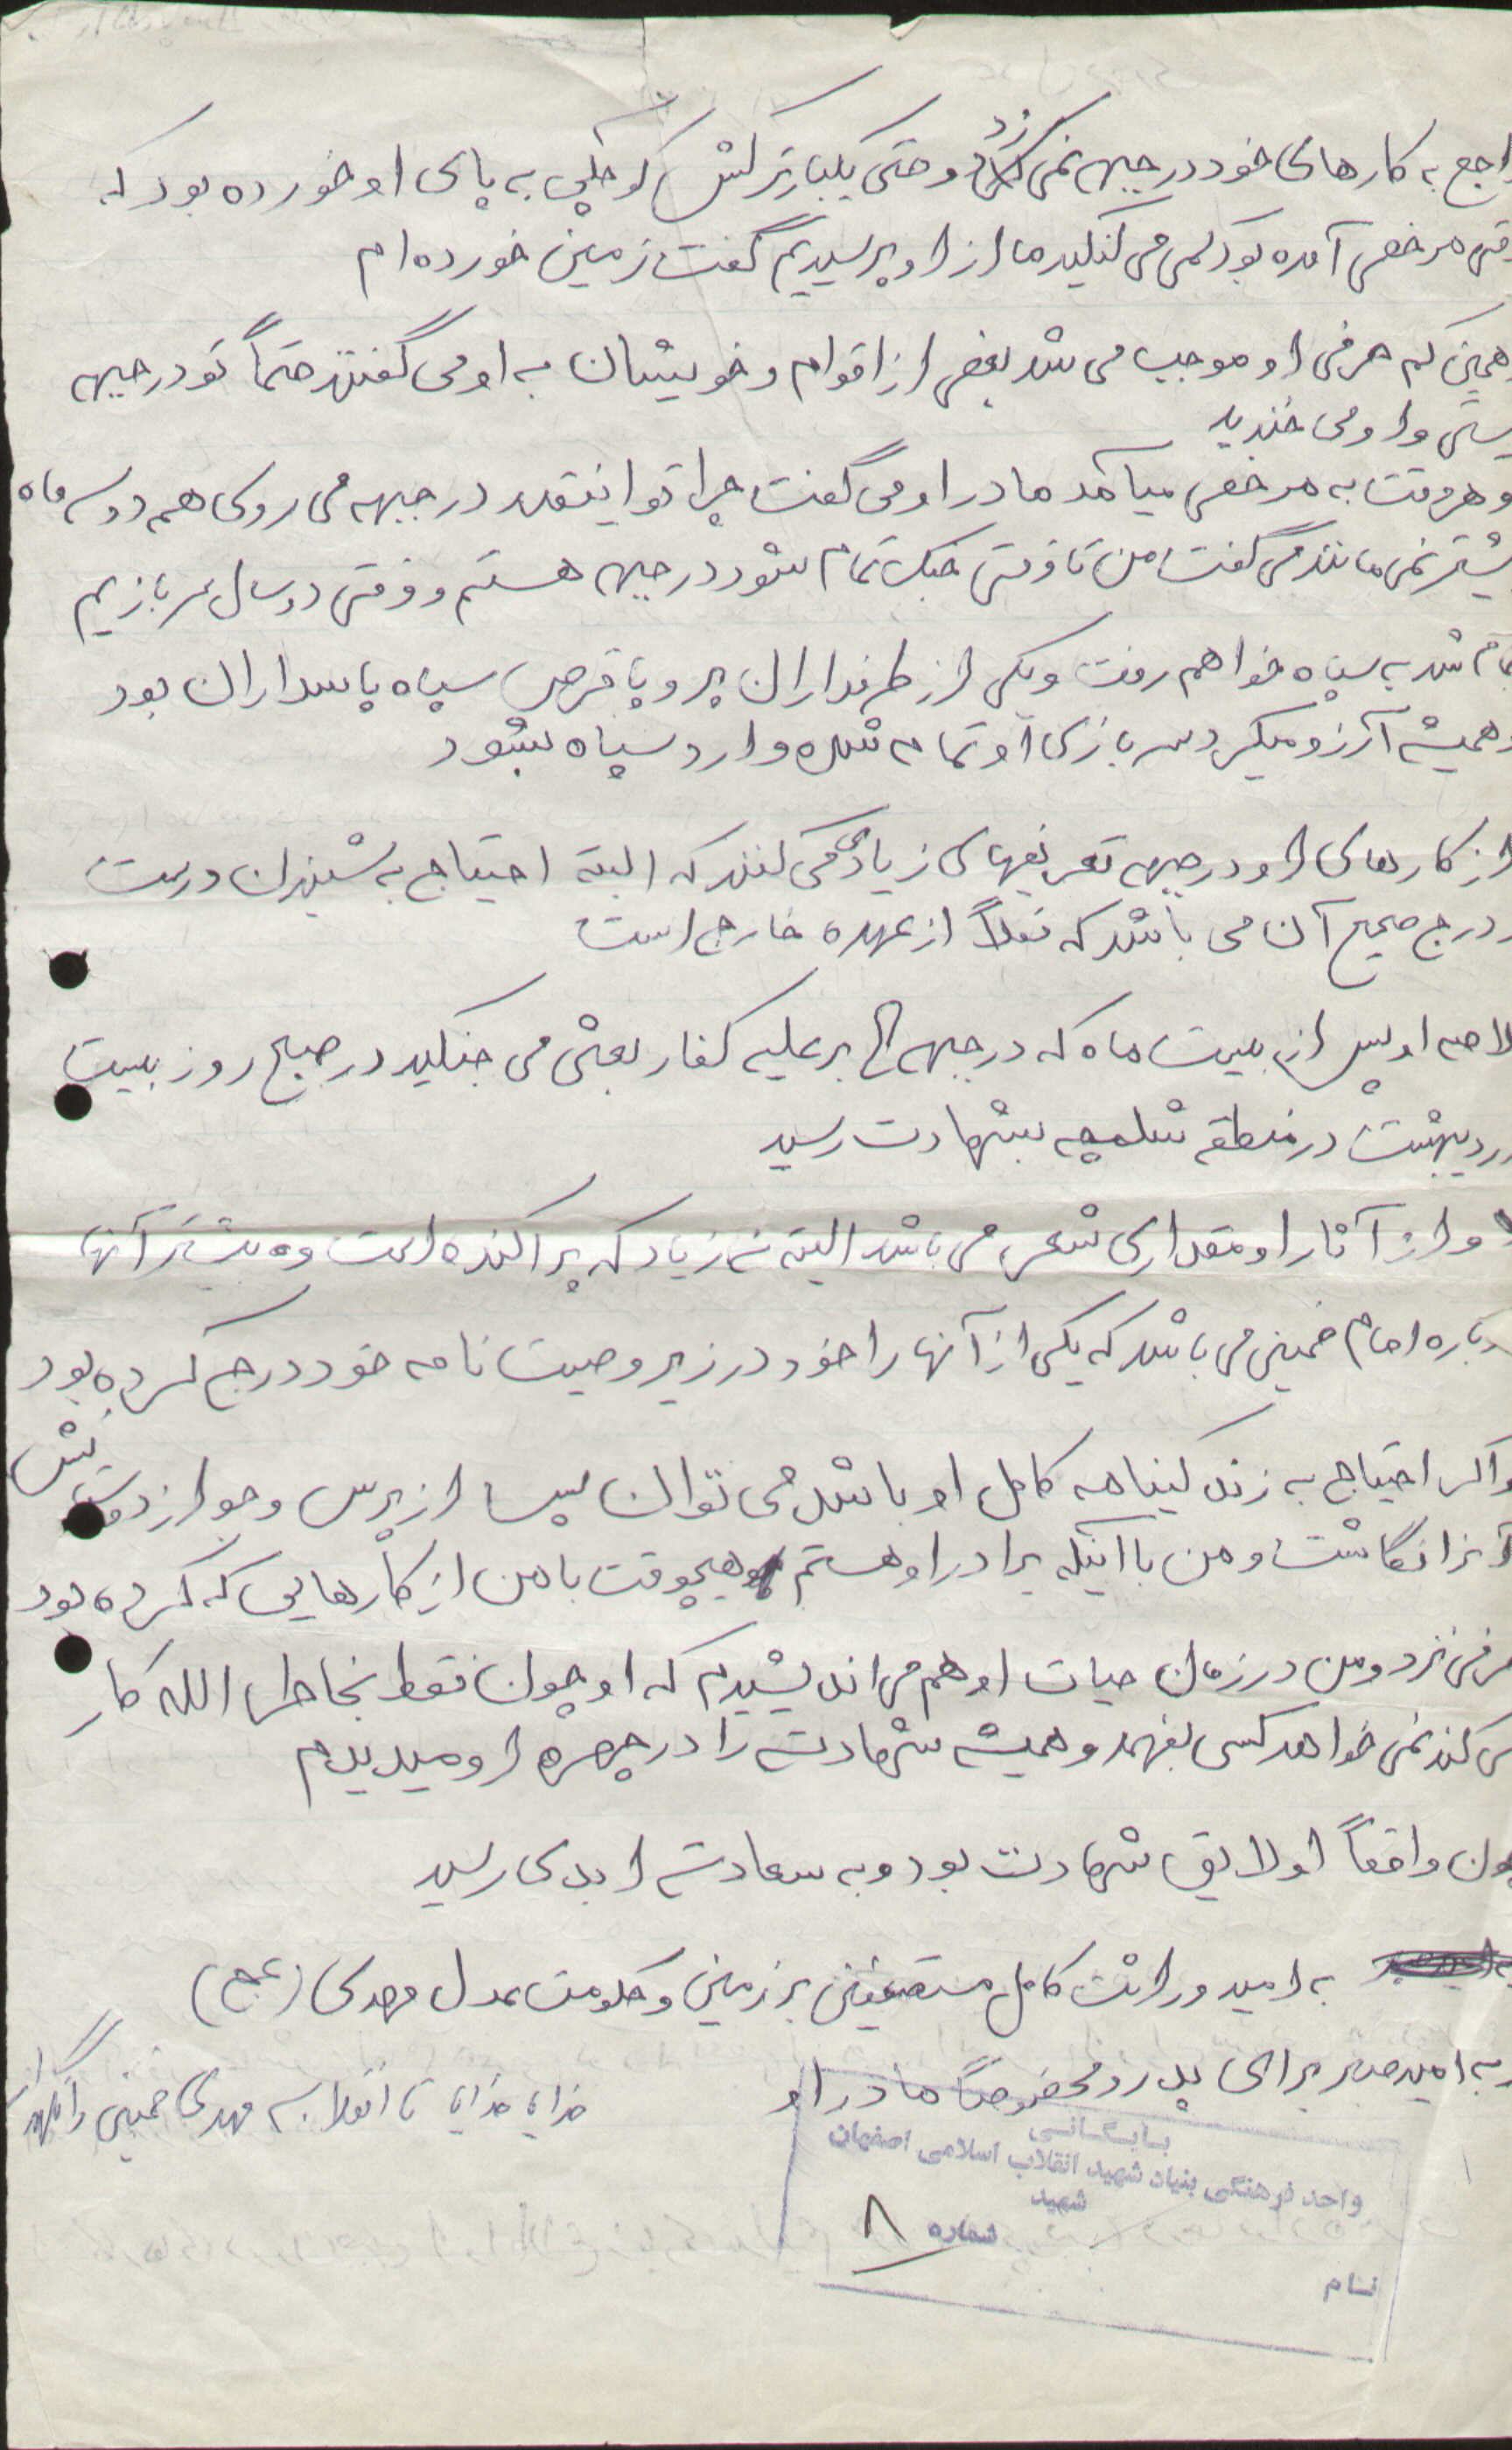 راجع به کارهای خود در جبهه نمی زد و حتی یکبار ترکش کوچکی به پای او خورده بود که
وقتی مرخصی آمده بود کمی می لنگید ما از او پرسیدیم گفت زمین خورده ام
همین کم حرفی او موجب می شد بعضی از اقوام و خویشان به او می گفتند حتماً تو در جبهه
نیستی و او می خندید
و هر وقت به مرخصی میآمد مادر او می گفت چرا تو اینقدر در جبهه می روی همه دو سه ماه
بیشتر نمی مانند می گفت من تا وقتی جنگ تمام شود در جبهه هستم و وقتی دو سال سربازیم
تمام شد به سپاه خواهم رفت و یکی از طرفداران پر و پا قرص سپاه پاسداران بود
و همیشه آرزو میکرد سربازی او تمام شده وارد سپاه بشود
از کارهای او در جبهه تعریفهای زیادی می کنند که البته احتیاج به شنیدن درست
و درج صحیح آن می باشد که فعلاً از عهده خارج است
خلاصه او پس از بیست ماه که در جبهه ها بر علیه کفار بعثی می جنگید در صبح روز بیست
اردیبهشت در منطقه شلمچه بشهادت رسید
و از آثار او مقداری شعر می باشد البته نه زیاد که پراکنده است و بیشتر آنها
درباره امام خمینی می باشد که یکی از آنها را خود در زیر وصیت نامه خود درج کرده بود
و اگر احتیاج به زندگینامه کامل او باشد می توان پس از پرس و جو از دوستانش
آنرا نگاشت و من با اینکه برادر او هستم هیچوقت با من از کارهایی که کرده بود
حرفی نزد و من در زمان حیات او هم می اندیشیدم که او چون فقط بخاطر الله کار
می کند نمی خواهد کسی بفهمد و همیشه شهادت را در چهره او میدیدم
چون واقعاً او لایق شهادت بود و به سعادت ابدی رسید
به امید وراثت کامل مستضعفین بر زمین و حکومت عدل مهدی (عج)
و به امید صبر برای پدر و مخصوصاً مادر او
خدایا خدایا تا انقلاب مهدی خمینی را نگهدار
بایگانی
واحد فرهنگی بنیاد شهید انقلاب اسلامی اصفهان
شهید
شماره ۸
نام